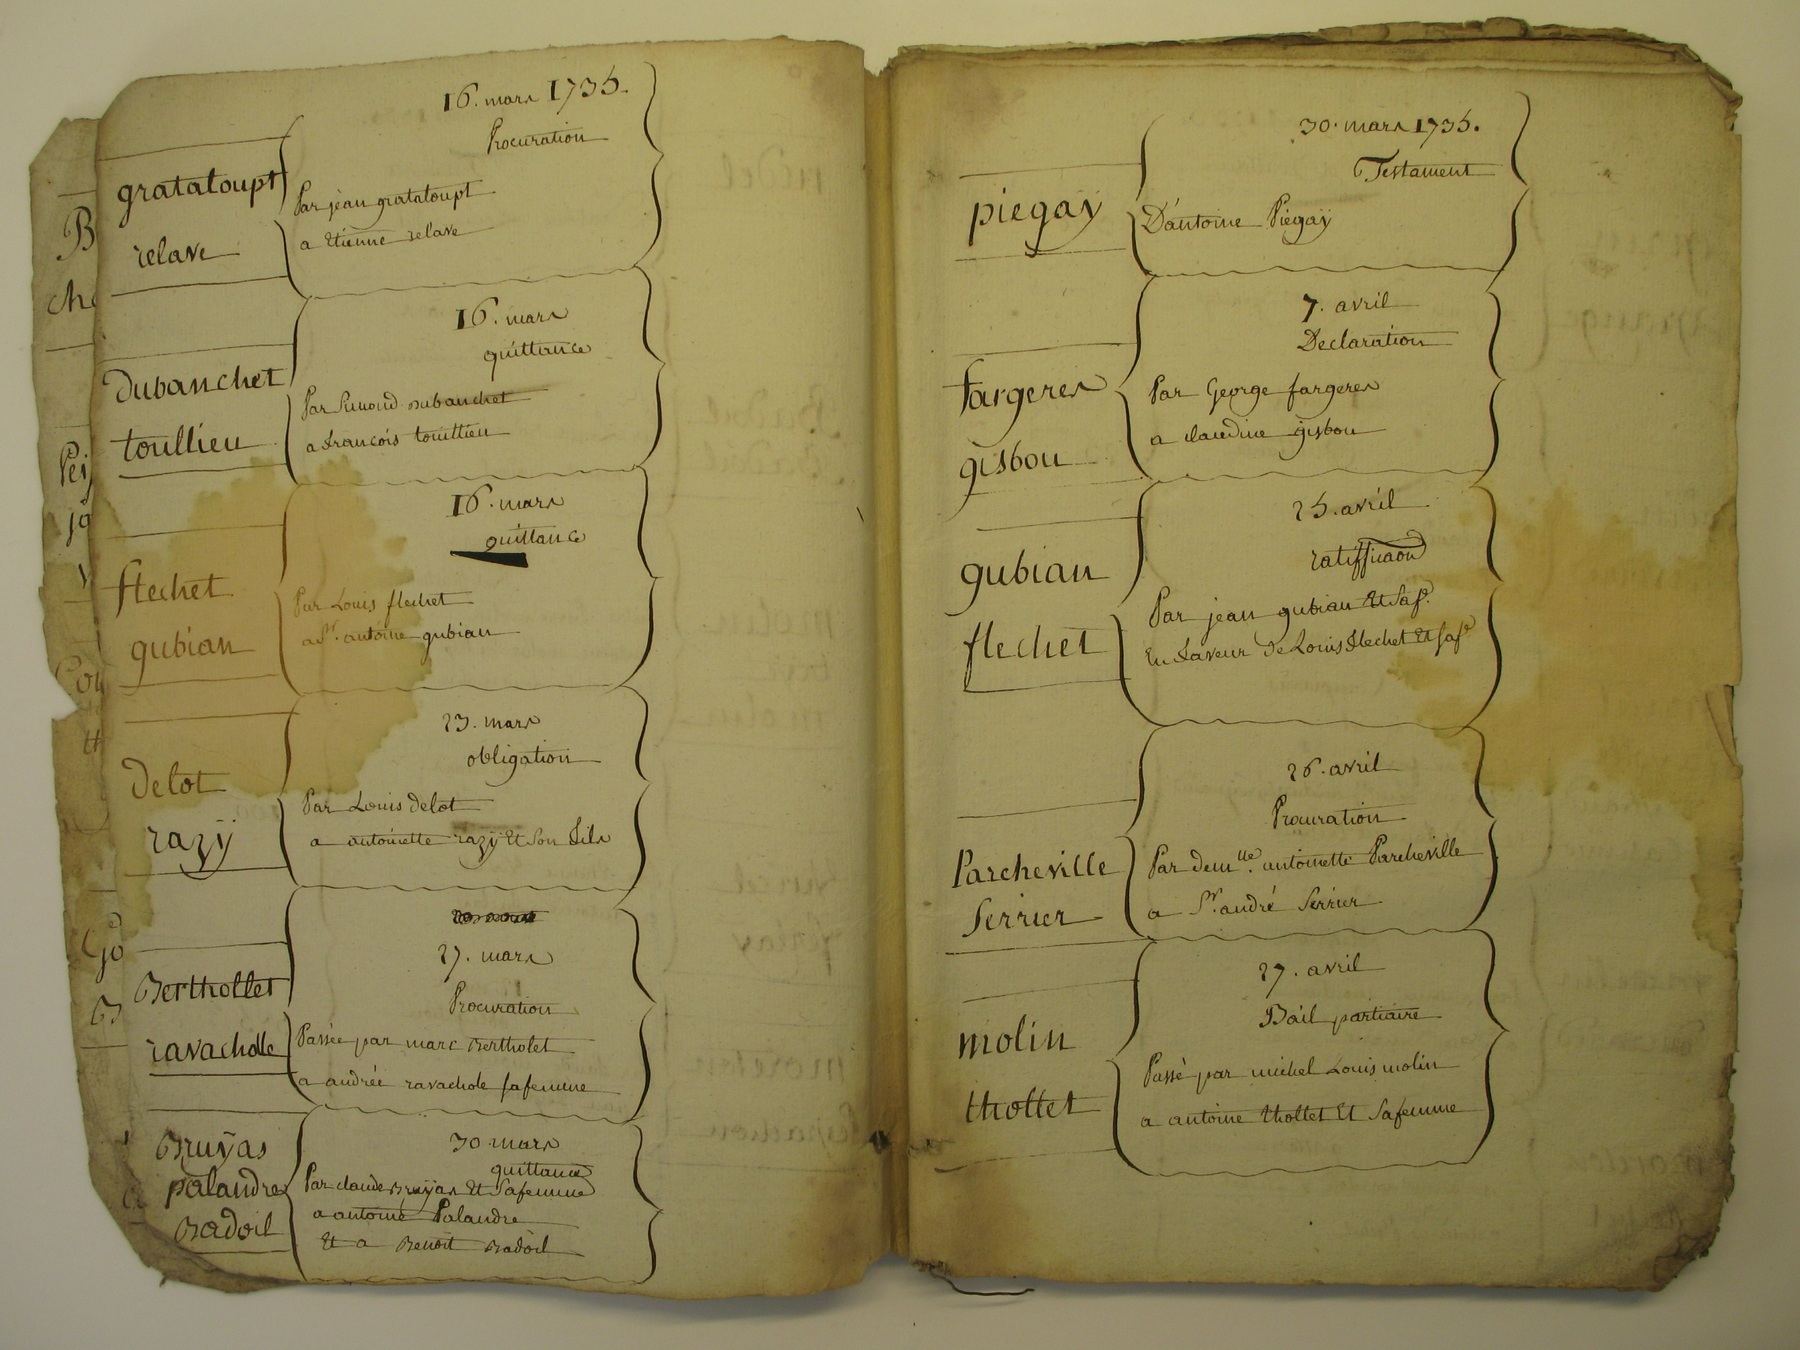 16. mars 1735.
Procuration
gratatoupt
relave
Par jean gratatoupt
a Etienne relave
16. mars
quittance
Dubanchet
toullieu
Par Dubanchet
a francois toullieu
16. mars
quittance
flechet
gubian
Par Louis flechet
a Sr. antoine gubian
23. mars
obligation
Delot
razÿ
Par Louis Delot
a antoinette razÿ Et Son fils
27. mars
Procuration
Berthollet
ravacholle
Passée par marc Bertholet
a andrée ravachole safemme
30 mars
quittance
Bruÿas
palandre
Badoil
Par claude Bruÿas Et Safemme
a antoine Palandre
Et a Benoit Badoil
30. mars 1735.
Testament
piegaÿ
D'antoine Piegaÿ
7. avril
Declaration
fargeres
gisbou
Par George fargeres
a claudine gisbou
25. avril
ratifficaon
gubian
flechet
Par jean gubian Et Safe.
En faveur de Louis flechet Et Safe
26. avril
Procuration
Parcheville
Serrier
Par demlle. antoinette Parcheville
a Sr. andré Serrier
27. avril
Bail partiaire
molin
thollet
Passé par michel Louis molin
a antoine thollet Et Safemme